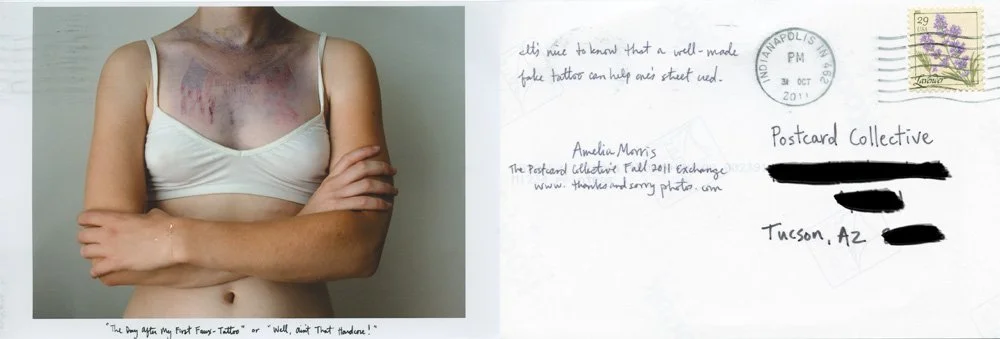 "The Day After My First Faux-Tattoo" or "Well, Ain't That Hardcore!"
It's nice to know that a well-made
fake tattoo can help one's street cred.
Amelia Morris
The Postcard Collective Fall 2011 Exchange
www. thanksandsorryphotos.com
INDIANAPOLIS IN 462
PM
31 OCT
2011
29
USA
Postcard Collective
Tucson, AZ